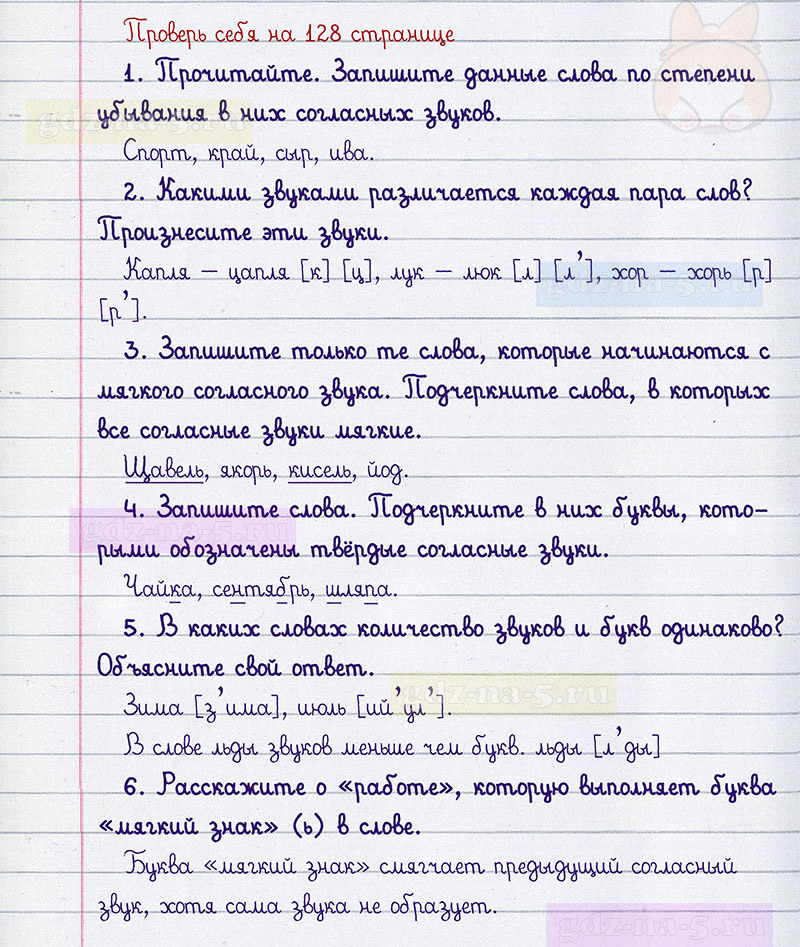 Проверь себя на 128 странице
1. Прочитайте. Запишите данные слова по степени
убывания в них согласных звуков.
gdz-na-5.ru
Спорт, край, сыр, ива.
2. Какими звуками различается каждая пара слов?
Произнесите эти звуки.
Капля – цапля [к] [ц], лук – люк [л] [л’], хор – хорь [р]
gdz-na-5.ru
[р’].
3. Запишите только те слова, которые начинаются с
мягкого согласного звука. Подчеркните слова, в которых
все согласные звуки мягкие.
Щавель, якорь, кисель, йод.
4. Запишите слова. Подчеркните в них буквы, кото-
gdz-na-5.ru
рыми обозначены твёрдые согласные звуки.
Чайка, сентябрь, шляпа.
5. В каких словах количество звуков и букв одинаково?
Объясните свой ответ.
gdz-na-5.ru
Зима [з’има], июль [ий’ул’].
В слове льды звуков меньше чем букв. льды [л’ды]
6. Расскажите о «работе», которую выполняет буква
«мягкий знак» (ь) в слове.
Буква «мягкий знак» смягчает предыдущий согласный
звук, хотя сама звука не образует.
gdz-na-5.ru